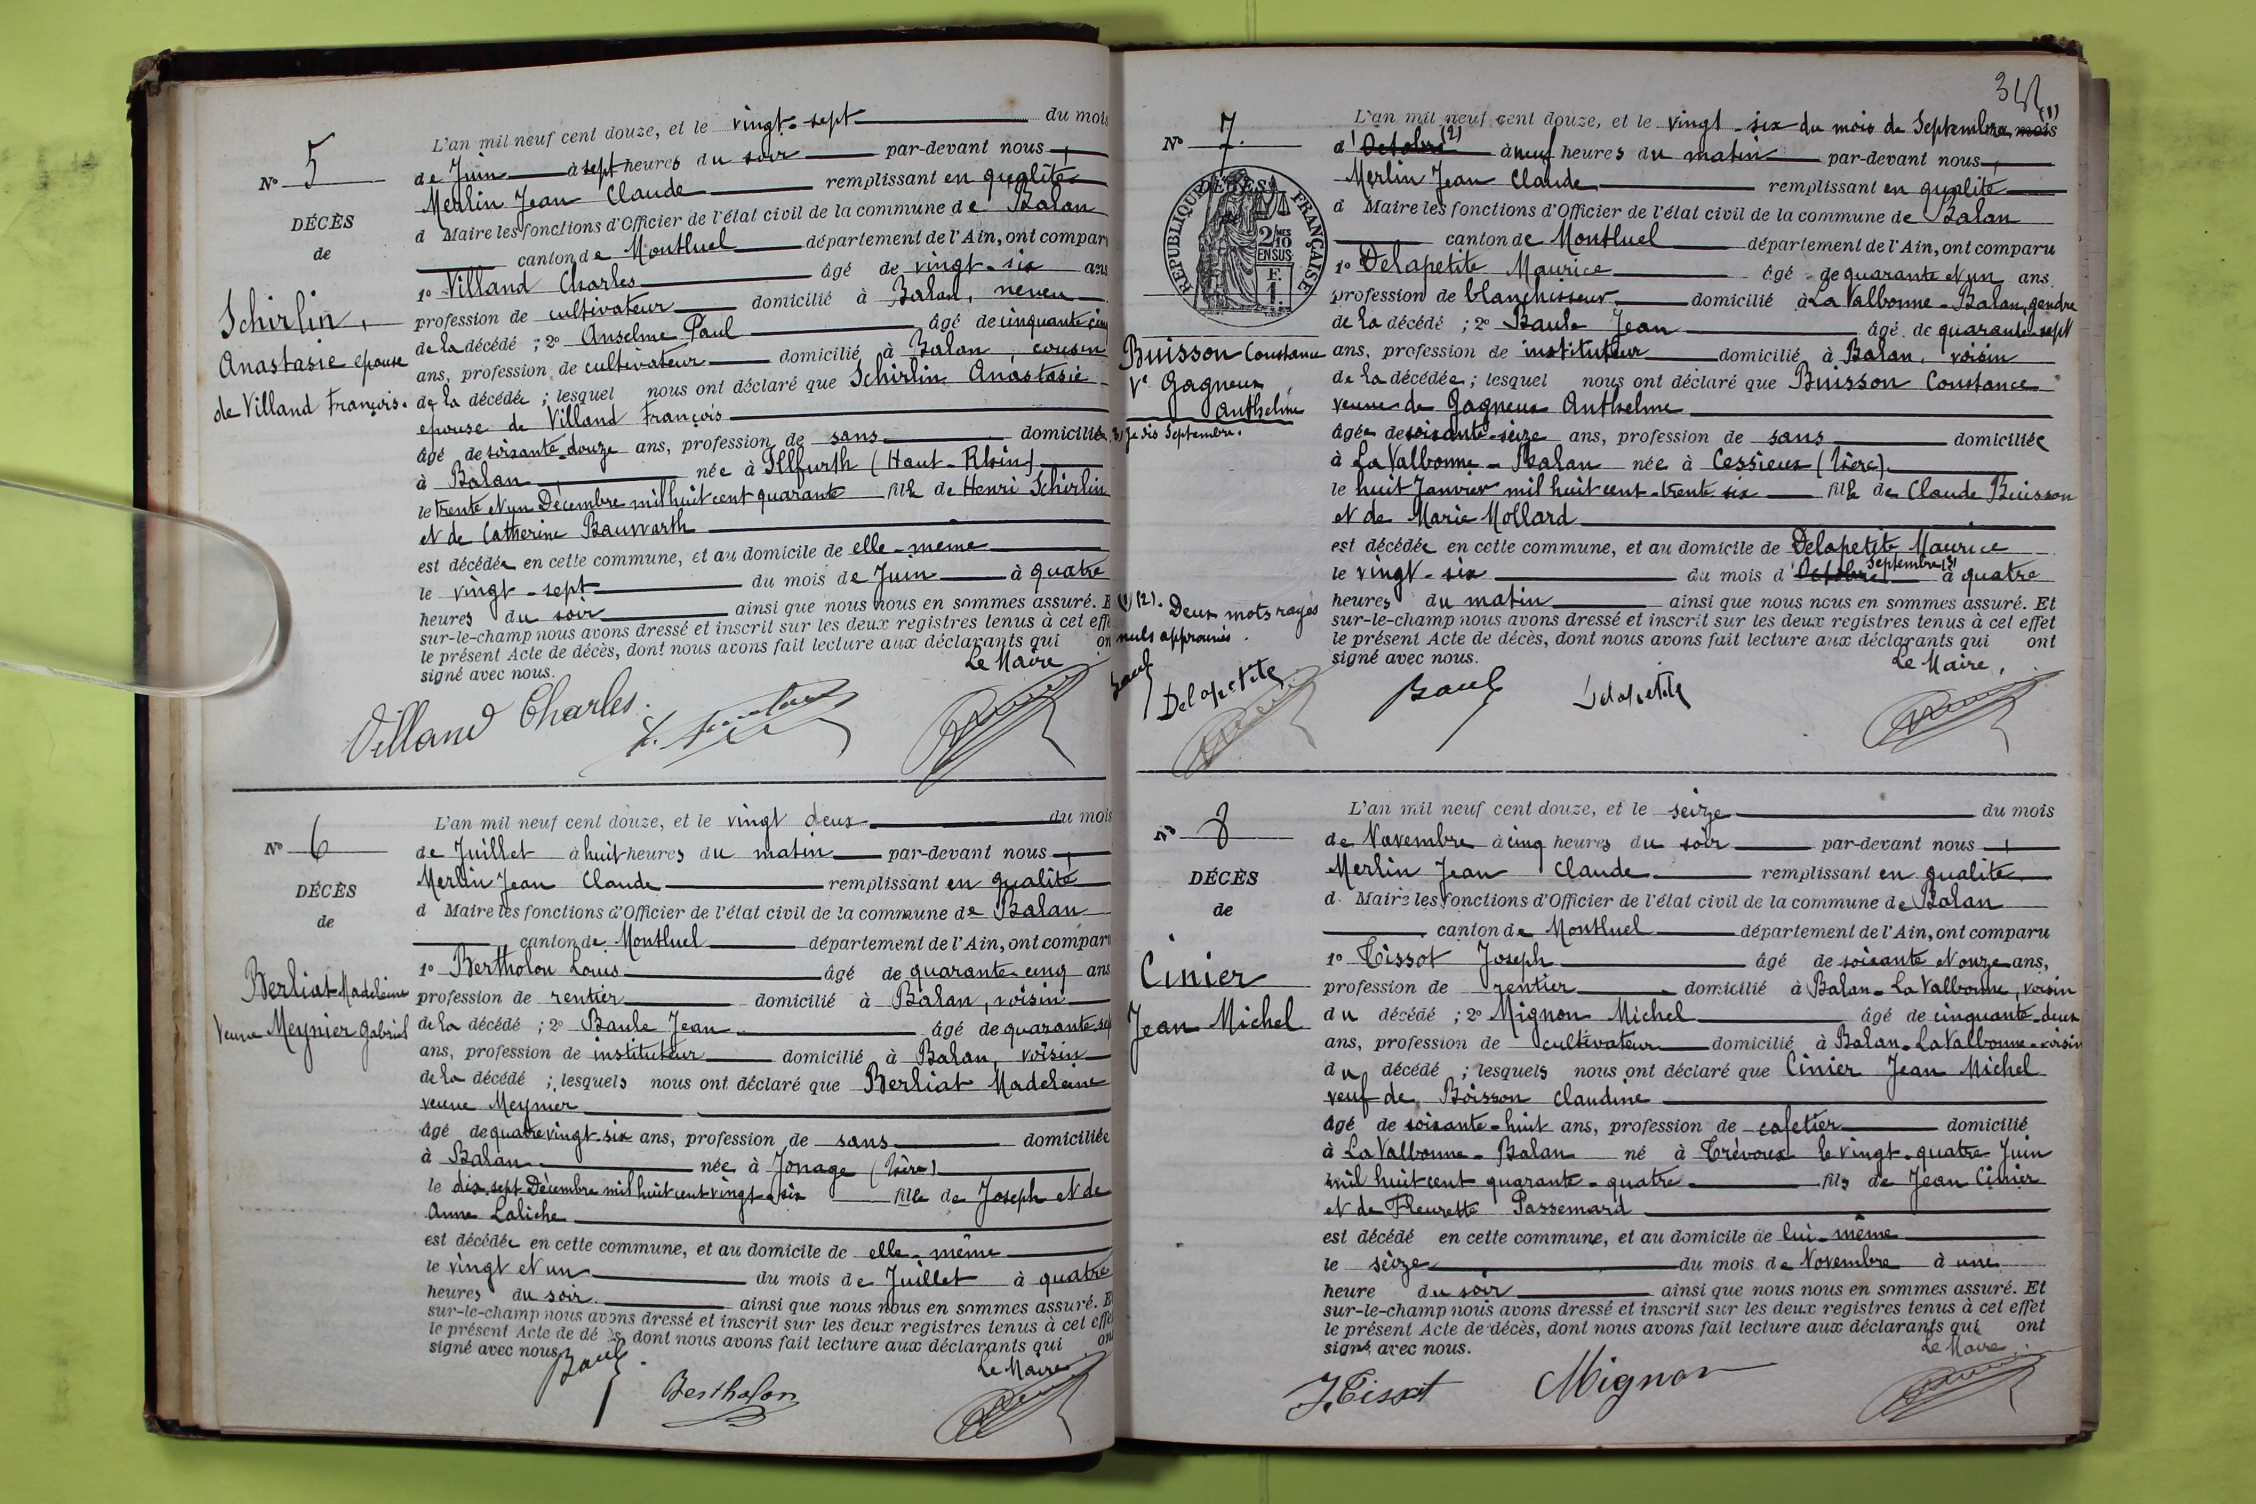 N° 5
DÉCÈS
de
Schirlin,
Anastasie epouse
de Villand François.
L'an mil neuf cent douze, et le vingt-sept du mois
de Juin à sept heures du soir par-devant nous,
Merlin Jean Claude remplissant en qualité
d Maire les fonctions d'Officier de l'état civil de la commune de Balan
canton de Montluel département de l'Ain, ont compar
1° Villand Charles âgé de vingt-six ans
profession de cultivateur domicilié à Balan, neveu
de la décédé ; 2° Anselme Paul âgé de cinquante cinq
ans, profession de cultivateur domicilié à Balan, cousin
de la décédée ; lesquel nous ont déclaré que Schirlin Anastasie
epouse de Villand François
âgé de soixante-douze ans, profession de sans domiciliée
à Balan, née à Illfurth (Haut-Rhin)
le trente et un Décembre mil huit cent quarante fille de Henri Schirlin
et de Catherine Bauwarth
est décédée en cette commune, et au domicile de elle-même
le vingt-sept du mois de Juin à quatre
heures du soir ainsi que nous nous en sommes assuré. E
sur-le-champ nous avons dressé et inscrit sur les deux registres tenus à cet effe
le présent Acte de décès, dont nous avons fait lecture aux déclarants qui on
signé avec nous.
Le Maire
Villand Charles.
N° 6
DÉCÈS
de
Berliat Madeleine
Veuve Meynier Gabriel
L'an mil neuf cent douze, et le vingt deux du mois
de Juillet à huit heures du matin par-devant nous,
Merlin Jean Claude remplissant en qualité
d Maire les fonctions d'Officier de l'état civil de la commune de Balan
canton de Montluel département de l'Ain, ont compar
1° Bertholon Louis âgé de quarante-cinq ans
profession de rentier domicilié à Balan, voisin
de la décédé ; 2° Baule Jean âgé de quarante-sep
ans, profession de instituteur domicilié à Balan, voisin
de la décédé ; lesquels nous ont déclaré que Berliat Madeleine
veuve Meynier
âgé de quatre vingt-six ans, profession de sans domiciliée
à Balan née à Jonage (Isère)
le dix-sept Décembre mil huit cent vingt-six fille de Joseph et de
Anne Laliche
est décédée en cette commune, et au domicile de elle-même
le vingt et un du mois de Juillet à quatre
heures du soir ainsi que nous nous en sommes assuré. E
sur-le-champ nous avons dressé et inscrit sur les deux registres tenus à cet effe
le présent Acte de dé s, dont nous avons fait lecture aux déclarants qui on
signé avec nous.
Le Maire
Baule
Bertholon
N° 7.
DÉCÈS
RÉPUBLIQUE FRANÇAISE
2/10 MES
EN SUS
F.
1.
Buisson Constance
Ve Gagneux
Anthelme
3) Je dis Septembre.
(1) (2). Deux mots rayés
nuls approuvés.
Baule
Delapetite
L'an mil neuf cent douze, et le vingt-six du mois de Septembre mois (1)
d'Octobre (2) à neuf heures du matin par-devant nous,
Merlin Jean Claude remplissant en qualité
d Maire les fonctions d'Officier de l'état civil de la commune de Balan
canton de Montluel département de l'Ain, ont comparu
1° Delapetite Maurice âgé de quarante et un ans
profession de blanchisseur domicilié à La Valbonne-Balan, gendre
de la décédé ; 2° Baule Jean âgé de quarante-sept
ans, profession de instituteur domicilié à Balan, voisin
de la décédée ; lesquel nous ont déclaré que Buisson Constance
veuve de Gagneux Anthelme
âgée de soixante-seize ans, profession de sans domiciliée
à La Valbonne-Balan née à Cessieux (Isère)
le huit Janvier mil huit cent-trente six fille de Claude Buisson
et de Marie Mollard
est décédée en cette commune, et au domicile de Delapetite Maurice
Septembre (3)
le vingt-six du mois d'Octobre à quatre
heures du matin ainsi que nous nous en sommes assuré. Et
sur-le-champ nous avons dressé et inscrit sur les deux registres tenus à cet effet
le présent Acte de décès, dont nous avons fait lecture aux déclarants qui ont
signé avec nous.
Le Maire,
Baule
Delapetite
N° 8
DÉCÈS
de
Cinier
Jean Michel
L'an mil neuf cent douze, et le seize du mois
de Novembre à cinq heures du soir par-devant nous,
Merlin Jean Claude remplissant en qualité
d. Maire les fonctions d'Officier de l'état civil de la commune de Balan
canton de Montluel département de l'Ain, ont comparu
1° Tissot Joseph âgé de soixante et onze ans,
profession de rentier domicilié à Balan-La Valbonne, voisin
du décédé ; 2° Mignon Michel âgé de cinquante-deux
ans, profession de cultivateur domicilié à Balan-La Valbonne-voisin
du décédé ; lesquels nous ont déclaré que Cinier Jean Michel
veuf de Boisson Claudine
âgé de soixante-huit ans, profession de cafetier domicilié
à La Valbonne-Balan né à Trévoux le vingt-quatre Juin
mil huit cent quarante-quatre fils de Jean Cinier
et de Fleurette Passemard
est décédé en cette commune, et au domicile de lui-même
le seize du mois de Novembre à une
heure du soir ainsi que nous nous en sommes assuré. Et
sur-le-champ nous avons dressé et inscrit sur les deux registres tenus à cet effet
le présent Acte de décès, dont nous avons fait lecture aux déclarants qui ont
signé avec nous.
Le Maire
J. Tissot
Mignon